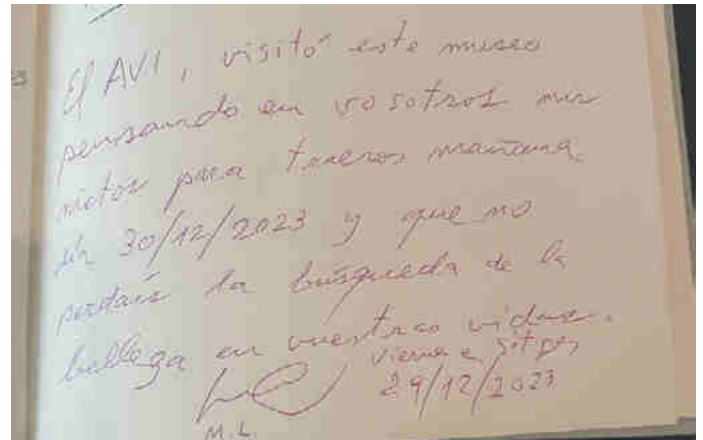 El AVI, visitó este museo
pensando en vosotros mis
nietos para traeros mañana
día 30/12/2023 y que no
perdáis la búsqueda de la
belleza en vuestras vidas.
Sitges
29/12/2023
M.L.